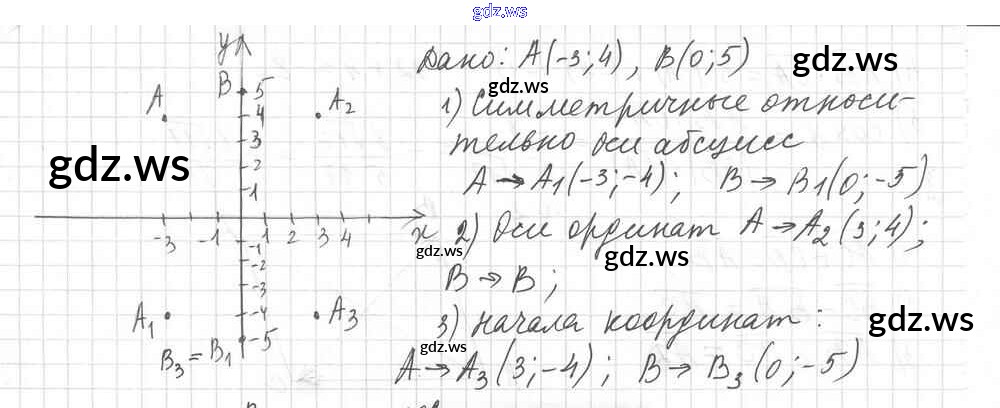 gdz.ws
Дано: A(-3;4), B(0;5)
gdz.ws
gdz.ws
1) Симметричные относи-
тельно оси абсцисс
A → A1(-3;-4); B → B1(0;-5)
2) Оси ординат A → A2(3;4);
B → B;
gdz.ws
gdz.ws
3) Начала координат:
gdz.ws
gdz.ws
A → A3(3;-4); B → B3(0;-5)
y
B 5
A 4 A2
3
gdz.ws
2
1
-3 -1 1 2 3 4 x
-1
-2
-3
A1 -4 A3
-5
B3 = B1